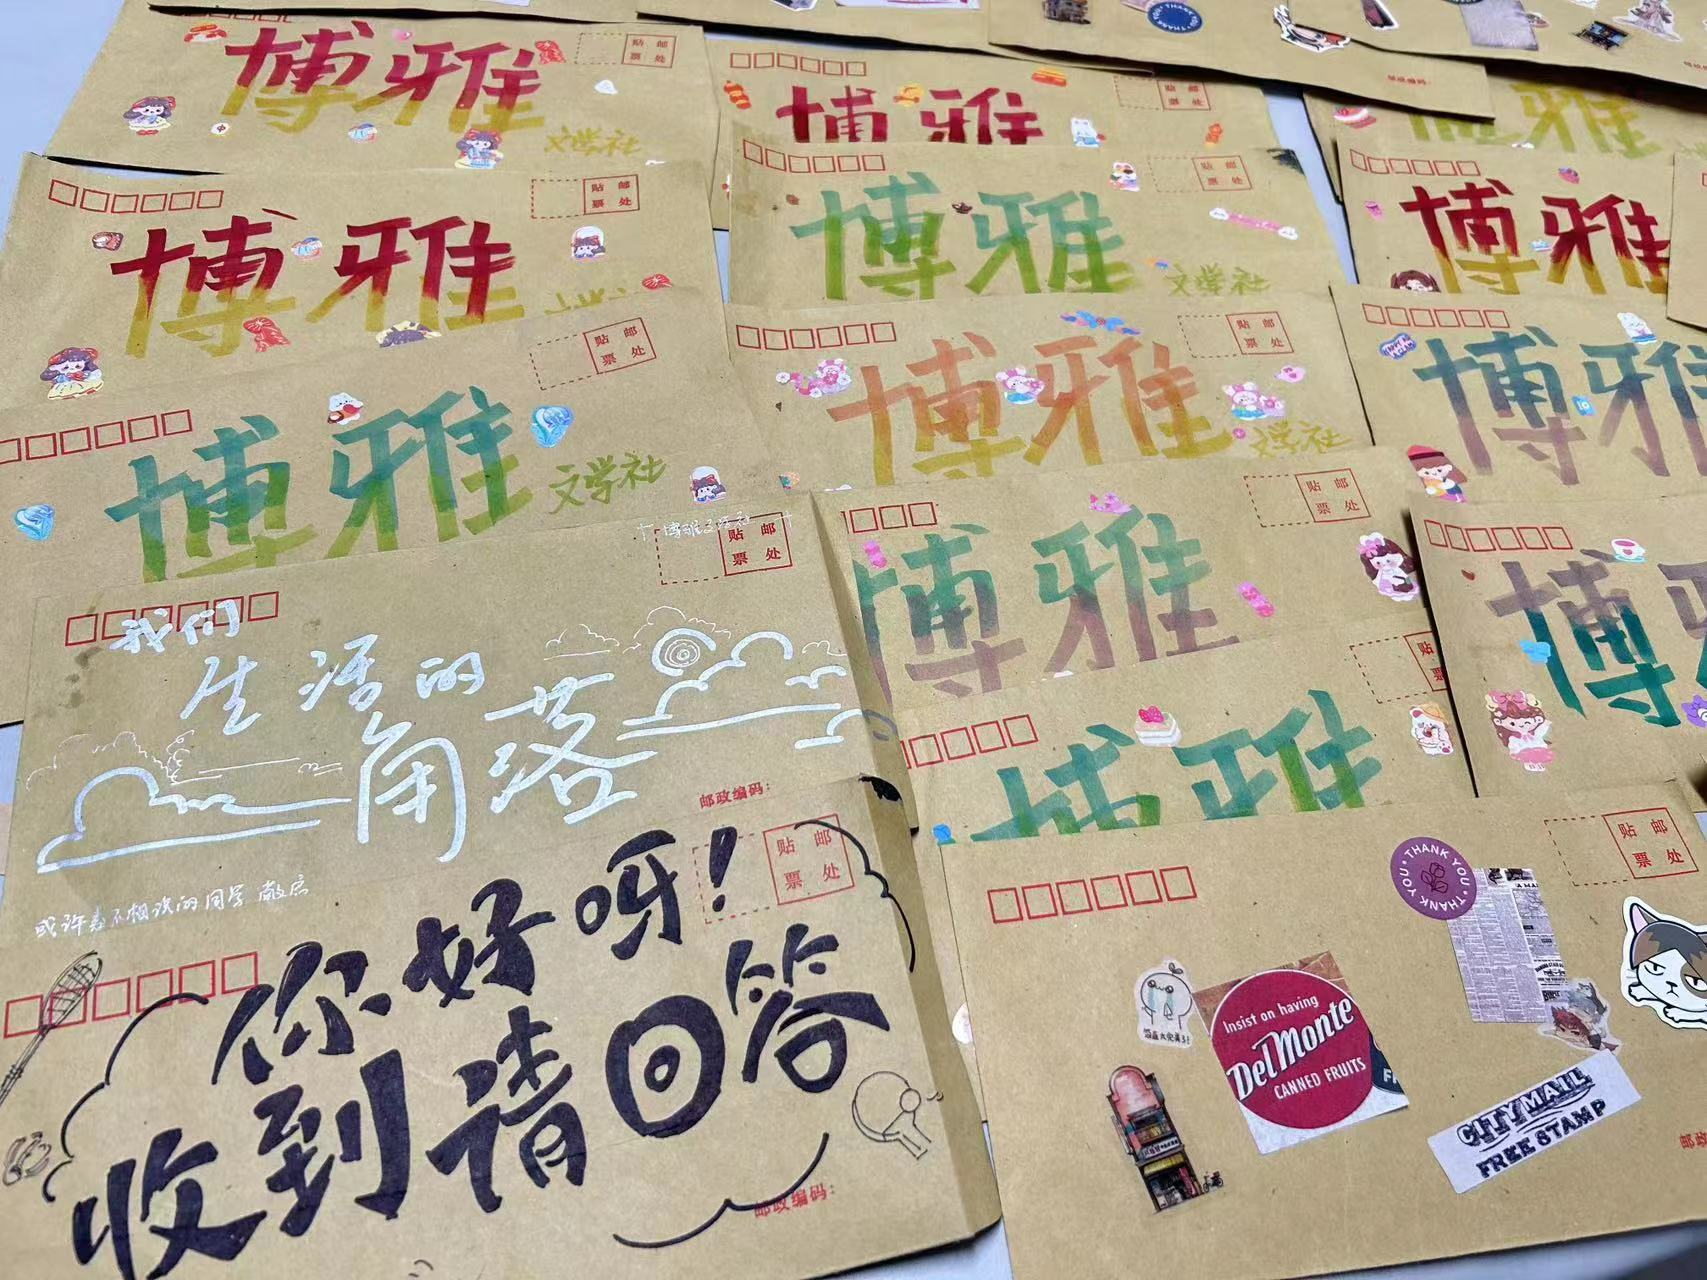 博雅
文学社
贴邮
票处
博雅
贴邮
票处
博雅
贴邮
票处
博雅
文学社
贴邮
票处
博雅
贴邮
票处
博雅
文学社
贴邮
票处
博雅
文学社
贴邮
票处
博雅
博雅
贴邮
票处
博
博雅
贴邮
票处
我们
生活的
角落
贴邮
票处
邮政编码：
你好呀！
收到请回答
贴邮
票处
邮政编码：
THANK YOU · THANK YOU
Insist on having
Del Monte
CANNED FRUITS
CITY MAIL
FREE STAMP
贴邮
票处